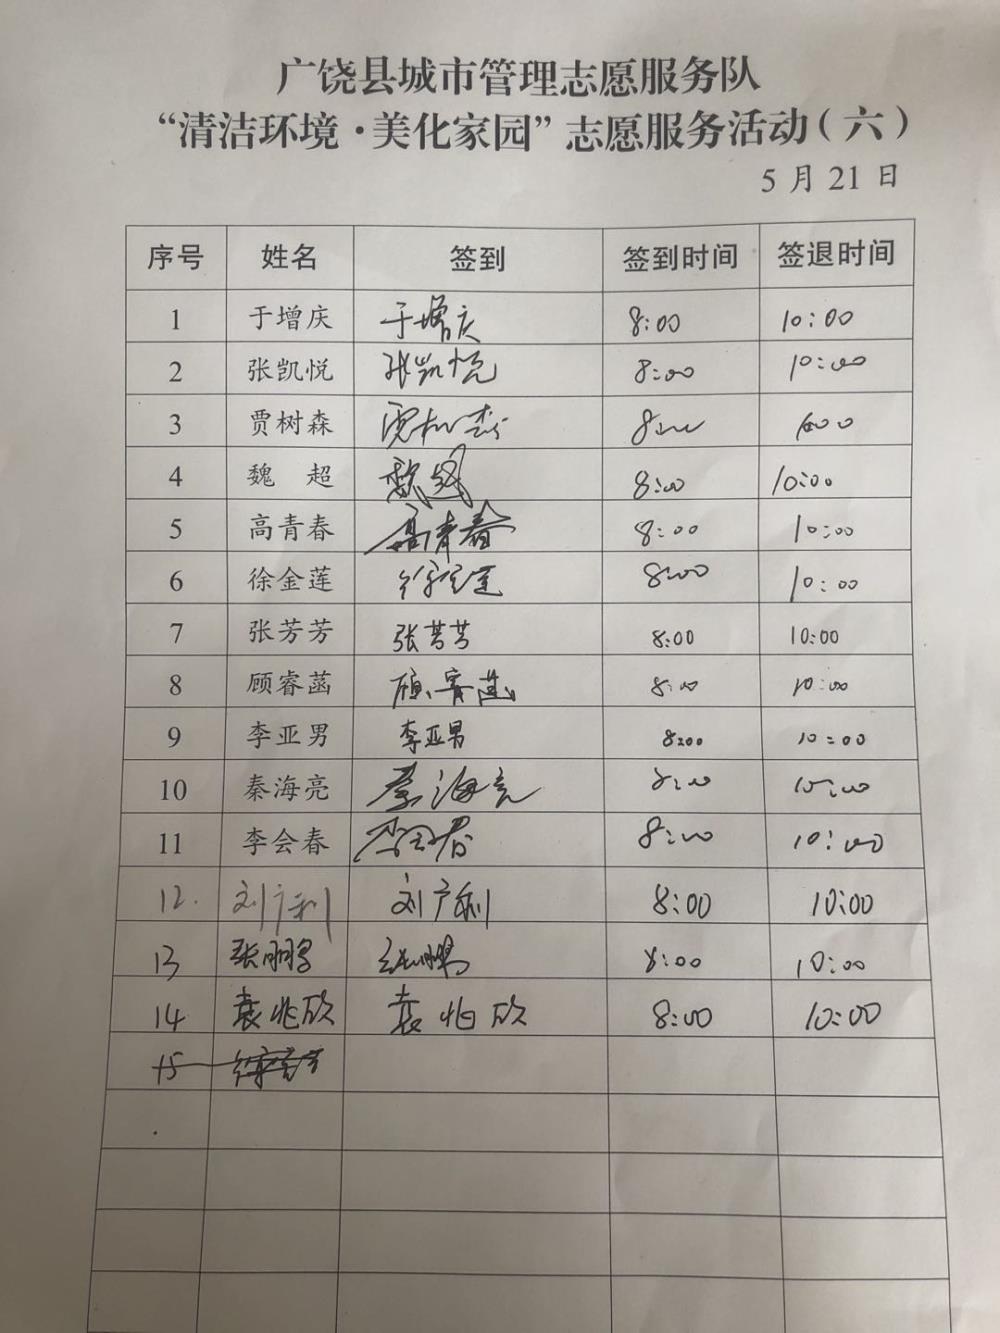 广饶县城市管理志愿服务队
“清洁环境·美化家园”志愿服务活动（六）
5月21日
序号 姓名 签到 签到时间 签退时间
1 于增庆 于增庆 8:00 10:00
2 张凯悦 张凯悦 8:00 10:00
3 贾树森 贾树森 8:00 10:00
4 魏 超 魏超 8:00 10:00
5 高青春 高青春 8:00 10:00
6 徐金莲 徐金莲 8:00 10:00
7 张芳芳 张芳芳 8:00 10:00
8 顾睿菡 顾睿菡 8:00 10:00
9 李亚男 李亚男 8:00 10:00
10 秦海亮 秦海亮 8:00 10:00
11 李会春 李会春 8:00 10:00
12. 刘广利 刘广利 8:00 10:00
13 张鹏 张鹏 8:00 10:00
14 袁兆欣 袁兆欣 8:00 10:00
15